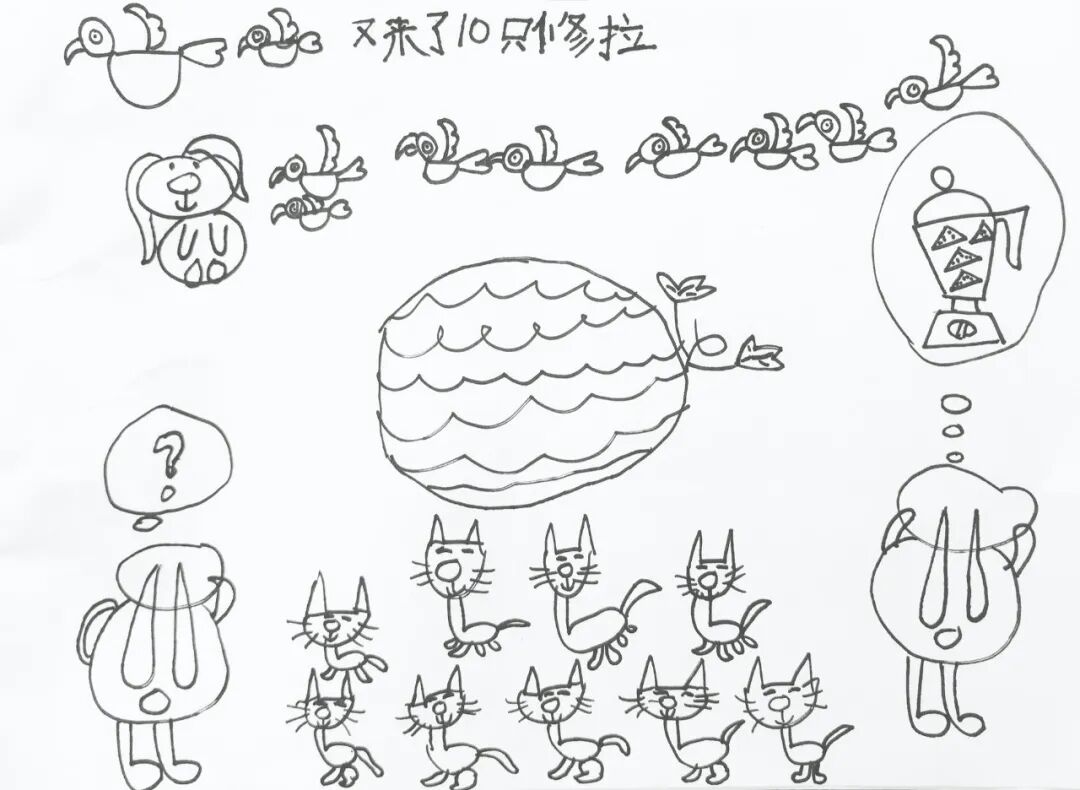 又来了10只修拉
?